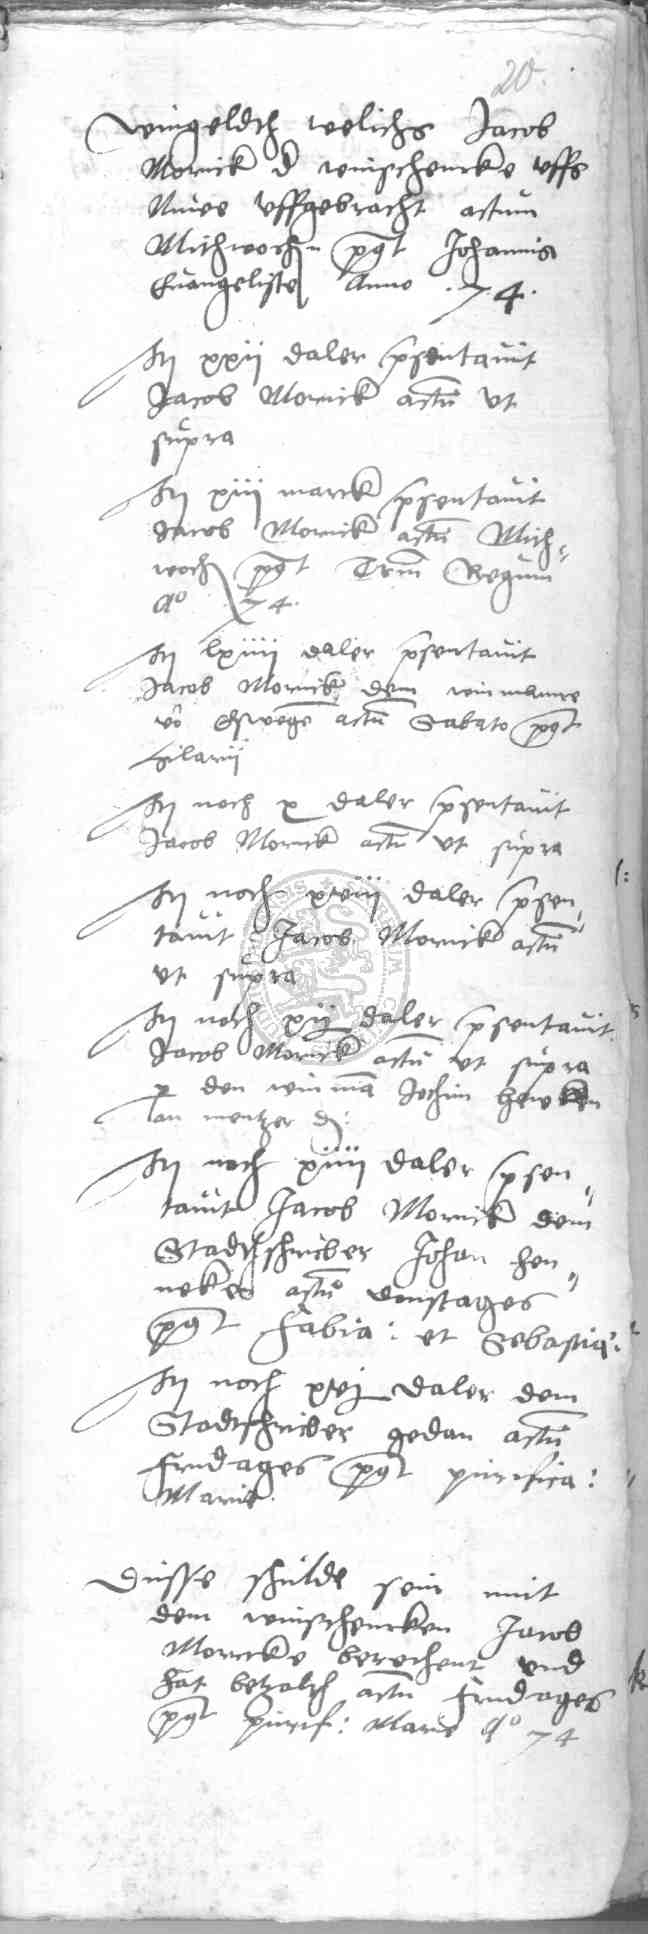 20.
Wingeldth welichs Jacob
Mornick d winschencke uffs
Nuwe uffgebracht actum
Mithwochn pqt Johannis
Evangeliste Anno .74.
It xxij daler psentavit
Jacob Mornick actū ut
supra
It xiij marck psentavit
Jacob Mornick actū Mith-
woch pqt Triū Regum
Ao 74.
It lxiiij daler psentavit
Jacob Mornick dem winmanne
vō Eswege actū Sabato pqt
Hilarij
It noch x daler psentavit
Jacob Mornick actū ut supra
It noch xviij daler psen-
tavit Jacob Mornick actū
ut supra
It noch xij daler psentavit
Jacob Mornick actū ut supra
p den winmā Jochim
an mentzer
It noch xiiij daler psen-
tavit Jacob Mornick dem
Stadtschriber Johan Hen-
neken actū dinstages
pqt Fabia: et Sebastia:
It noch xvj daler dem
Stadtschriber gedan actū
Fridages pqt purifica:
Marie
Dusse schulde sein mit
dem winschencken Jacob
Mornicke berechent und
hat betzalth actū Fridages
pqt purif: Marie Ao 74